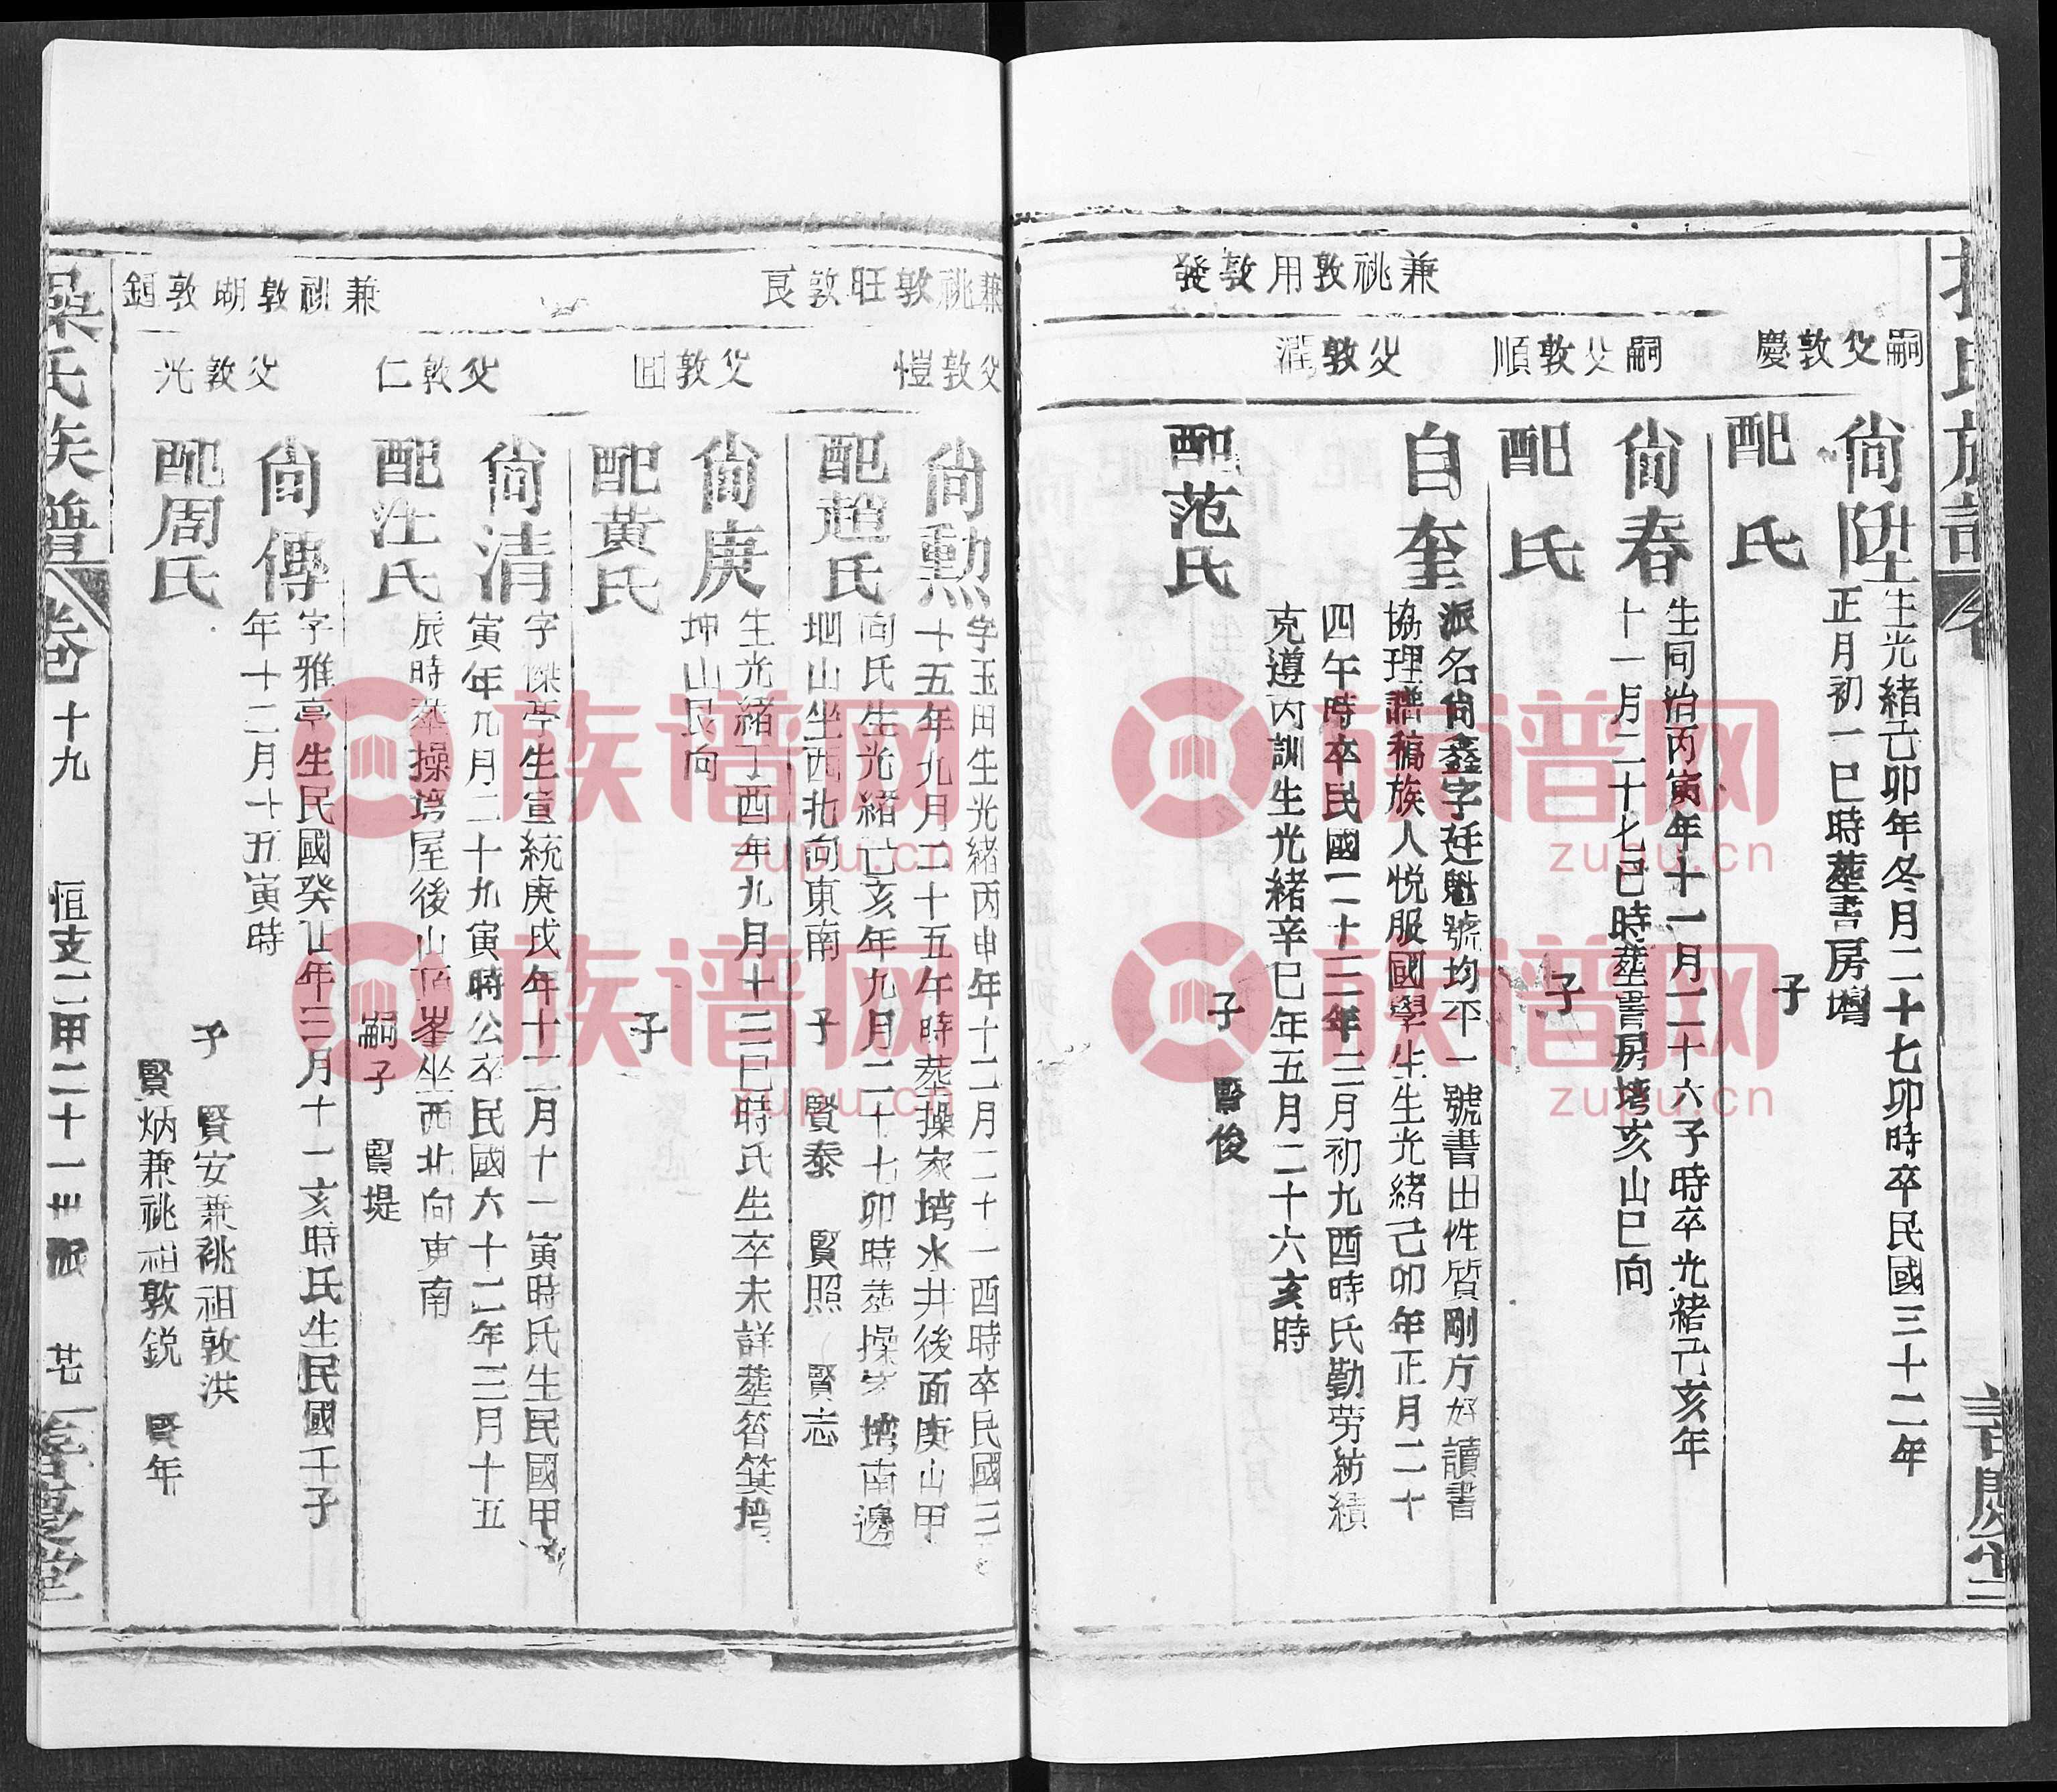 兼祧敦用敦發
嗣父敦慶
嗣父敦順
父敦潤
尚陞
生光緒己卯年冬月二十七卯時卒民國三十二年
正月初一巳時塟書房塆
配氏
子
尚春
生同治丙寅年十一月二十六子時卒光緒己亥年
十一月二十七巳時塟書房塆亥山巳向
配氏
子
自奎
派名尚鑫字廷魁號均平一號書田性質剛方好讀書
協理譜稿族人悅服國學生生光緒己卯年正月二十
四午時卒民國二十二年三月初九酉時氏勤劳紡績
克遵內訓生光緒辛巳年五月二十六亥時
配范氏
子 賢俊
兼祧敦旺敦良
兼祧敦湖敦鎮
父敦愷
父敦回
父敦仁
父敦光
尚勳
字玉田生光緒丙申年十二月二十一酉時卒民國三
十五年九月二十五午時塟操家塆水井後面庚山甲
向氏生光緒己亥年九月二十七卯時塟操家塆南邊
地山坐西北向東南
配趙氏
子 賢泰 賢照 賢志
尚庚
生光緒丁酉年九月十二巳時氏生卒未詳塟筲箕塆
坤山艮向
配黃氏
子
尚清
字傑亭生宣統庚戌年十二月十一寅時氏生民國甲
寅年九月二十九寅時公卒民國六十二年三月十五
辰時塟操塆屋後山頂峯坐西北向東南
配汪氏
嗣子 賢堤
尚傳
字雅亭生民國癸丑年三月十一亥時氏生民國壬子
年十二月十五寅時
配周氏
子 賢安兼祧祖敦洪
賢炳兼祧祖敦銳 賢年
操氏族譜 卷 十九 恒支二甲二十一世派 廿一 善慶堂
族谱网
zupu.cn
族谱网
zupu.cn
族谱网
zupu.cn
族谱网
zupu.cn